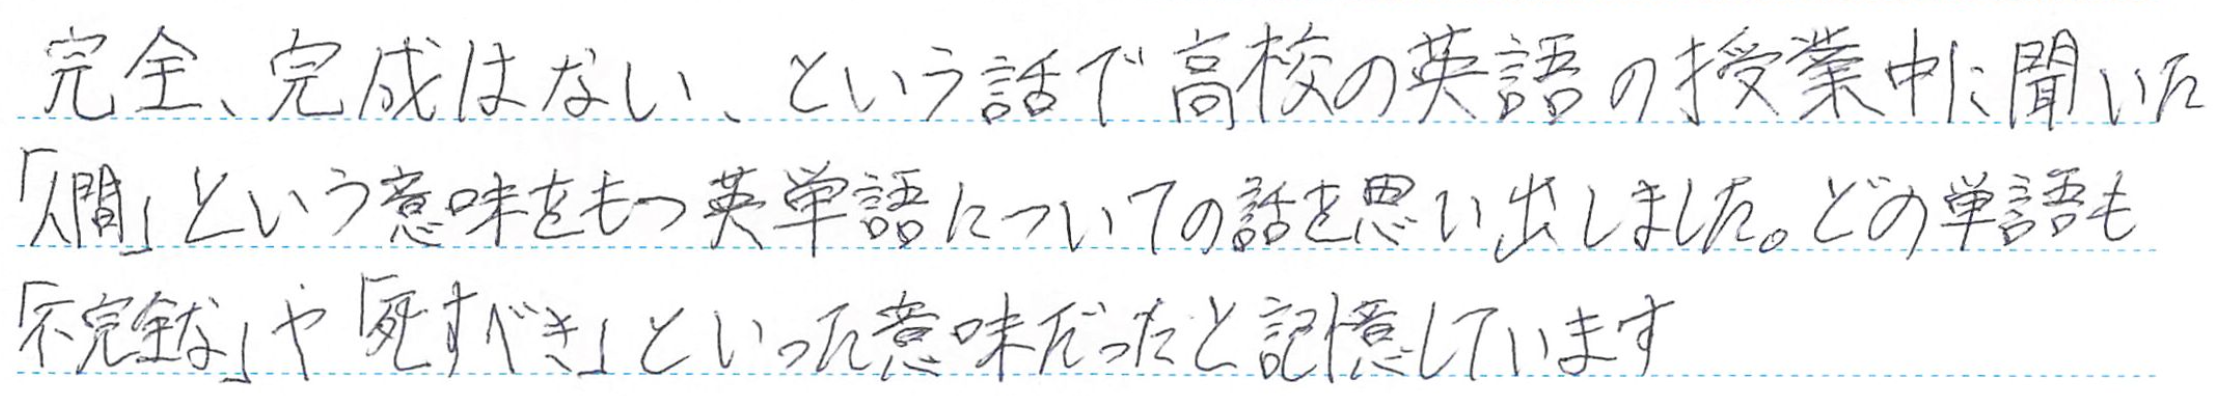 完全、完成はない、という話で高校の英語の授業中に聞いた
「人間」という意味をもつ英単語についての話を思い出しました。どの単語も
「不完全な」や「死すべき」といった意味だったと記憶しています